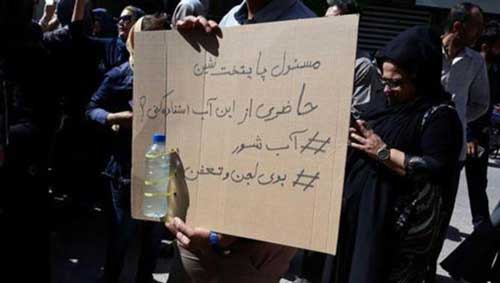 مسئول پایتخت نشین
حاضری از این آب استفاده کنی ؟
# آب شور
# بوی لجن و تعفن